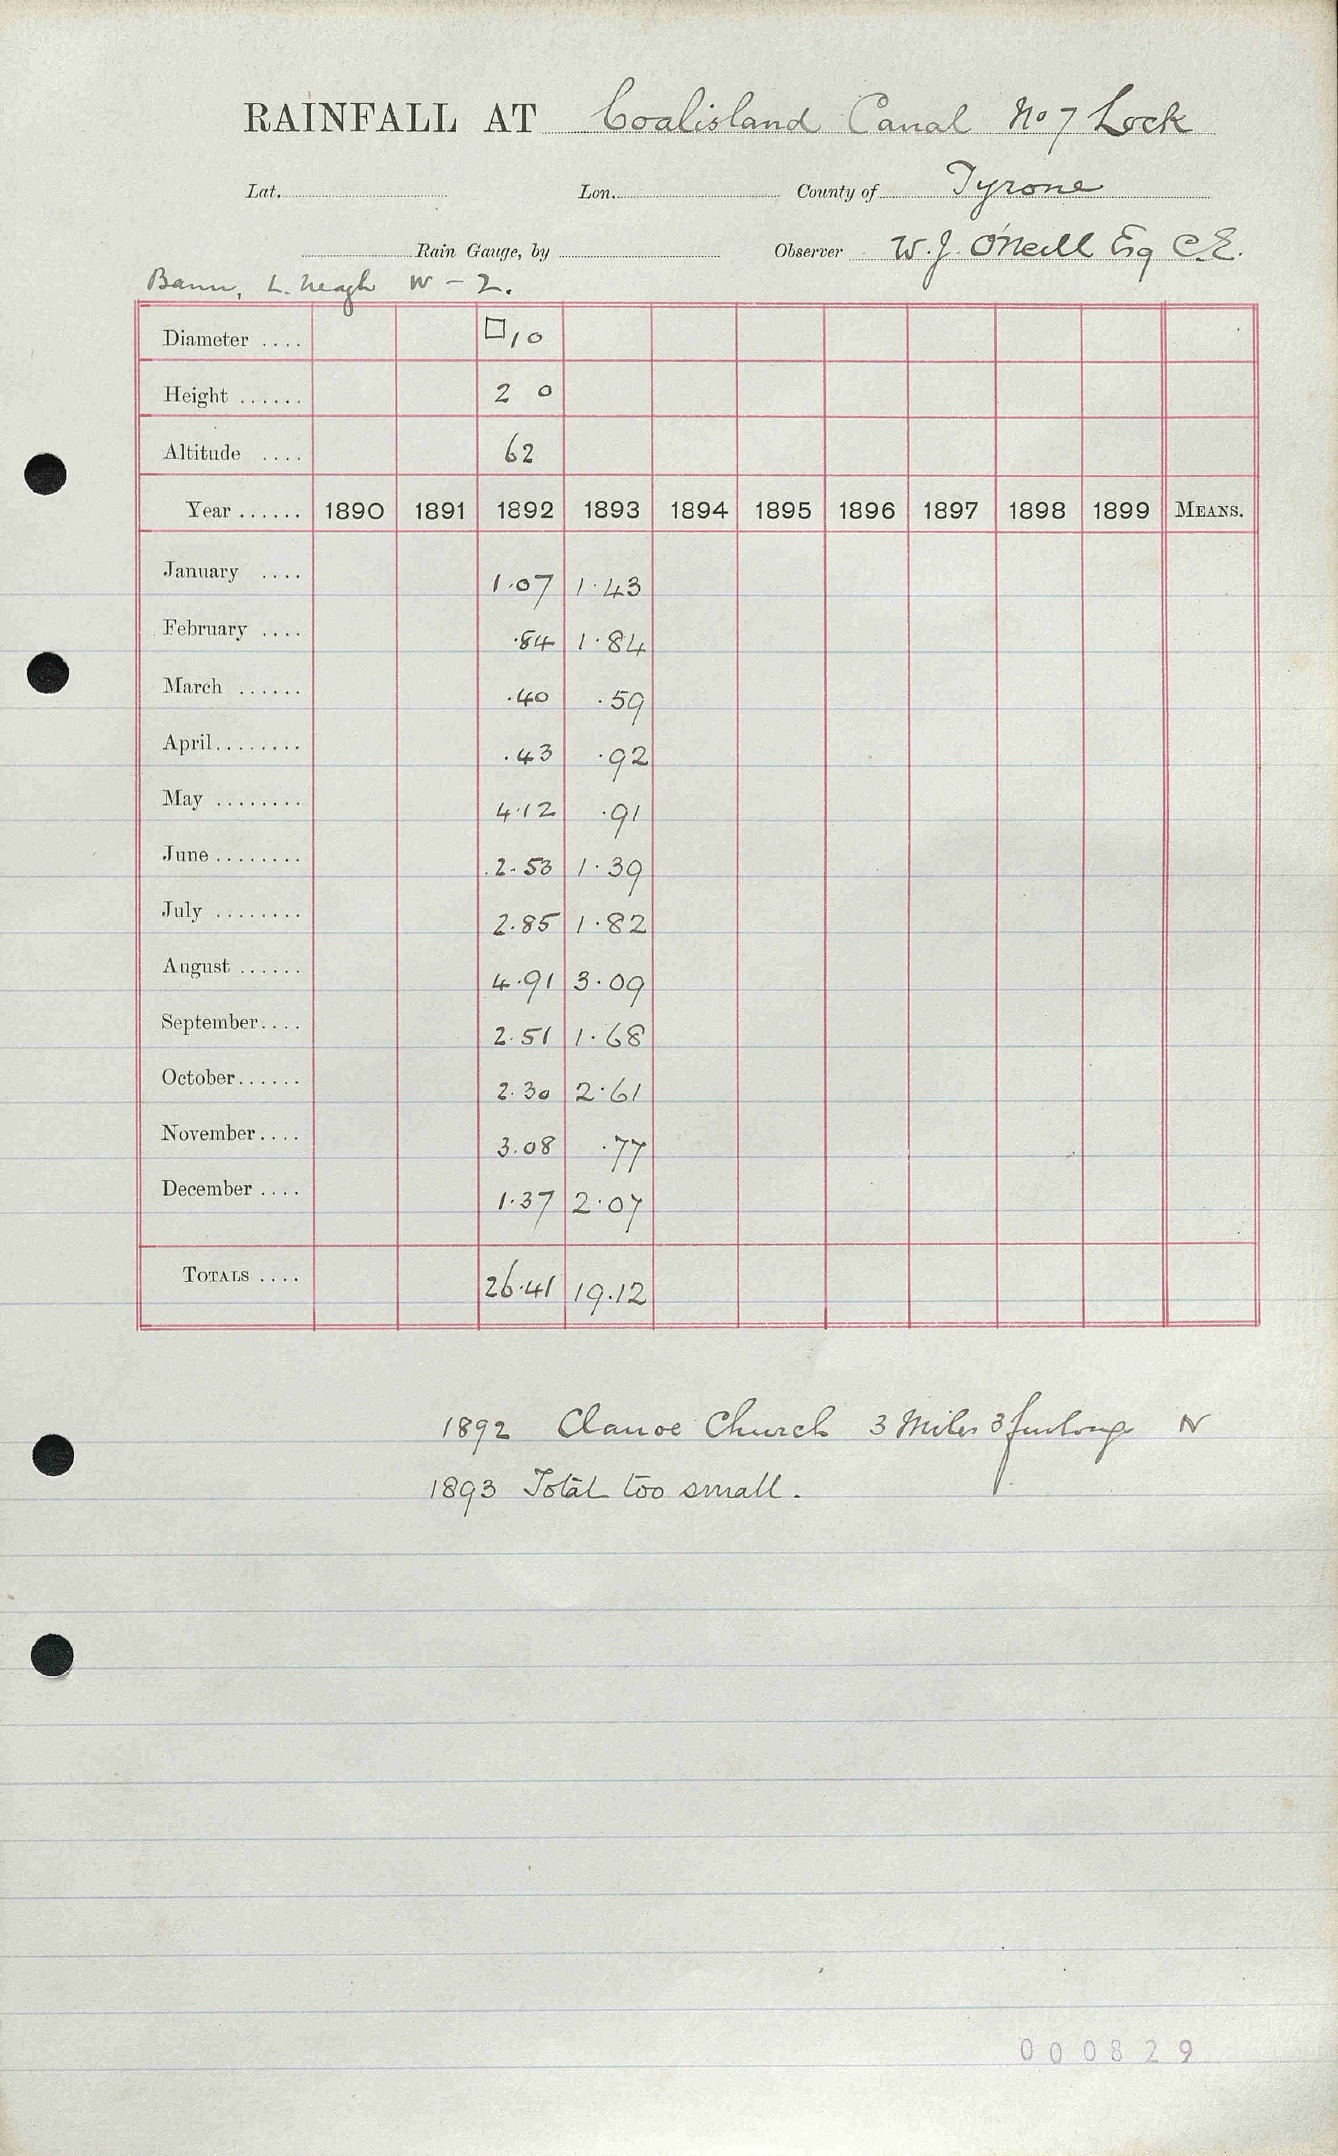 RAINFALL AT Coalisland Canal No 7 Lock
Lat. Lon. County of Tyrone
Rain Gauge, by Observer W. J. O'Neill Esq C.E.
Bann, L. Neagh W - 2.
Diameter .... □10
Height ...... 2 0
Altitude .... 62
Year ...... 1890 1891 1892 1893 1894 1895 1896 1897 1898 1899 MEANS.
January .... 1.07 1.43
February .... .84 1.84
March ...... .40 .59
April........ .43 .92
May ........ 4.12 .91
June ........ 2.53 1.39
July ........ 2.85 1.82
August ...... 4.91 3.09
September.... 2.51 1.68
October...... 2.30 2.61
November.... 3.08 .77
December .... 1.37 2.07
TOTALS .... 26.41 19.12
1892 Clanoe Church 3 Miles 3 furlongs N
1893 Total too small.
000829